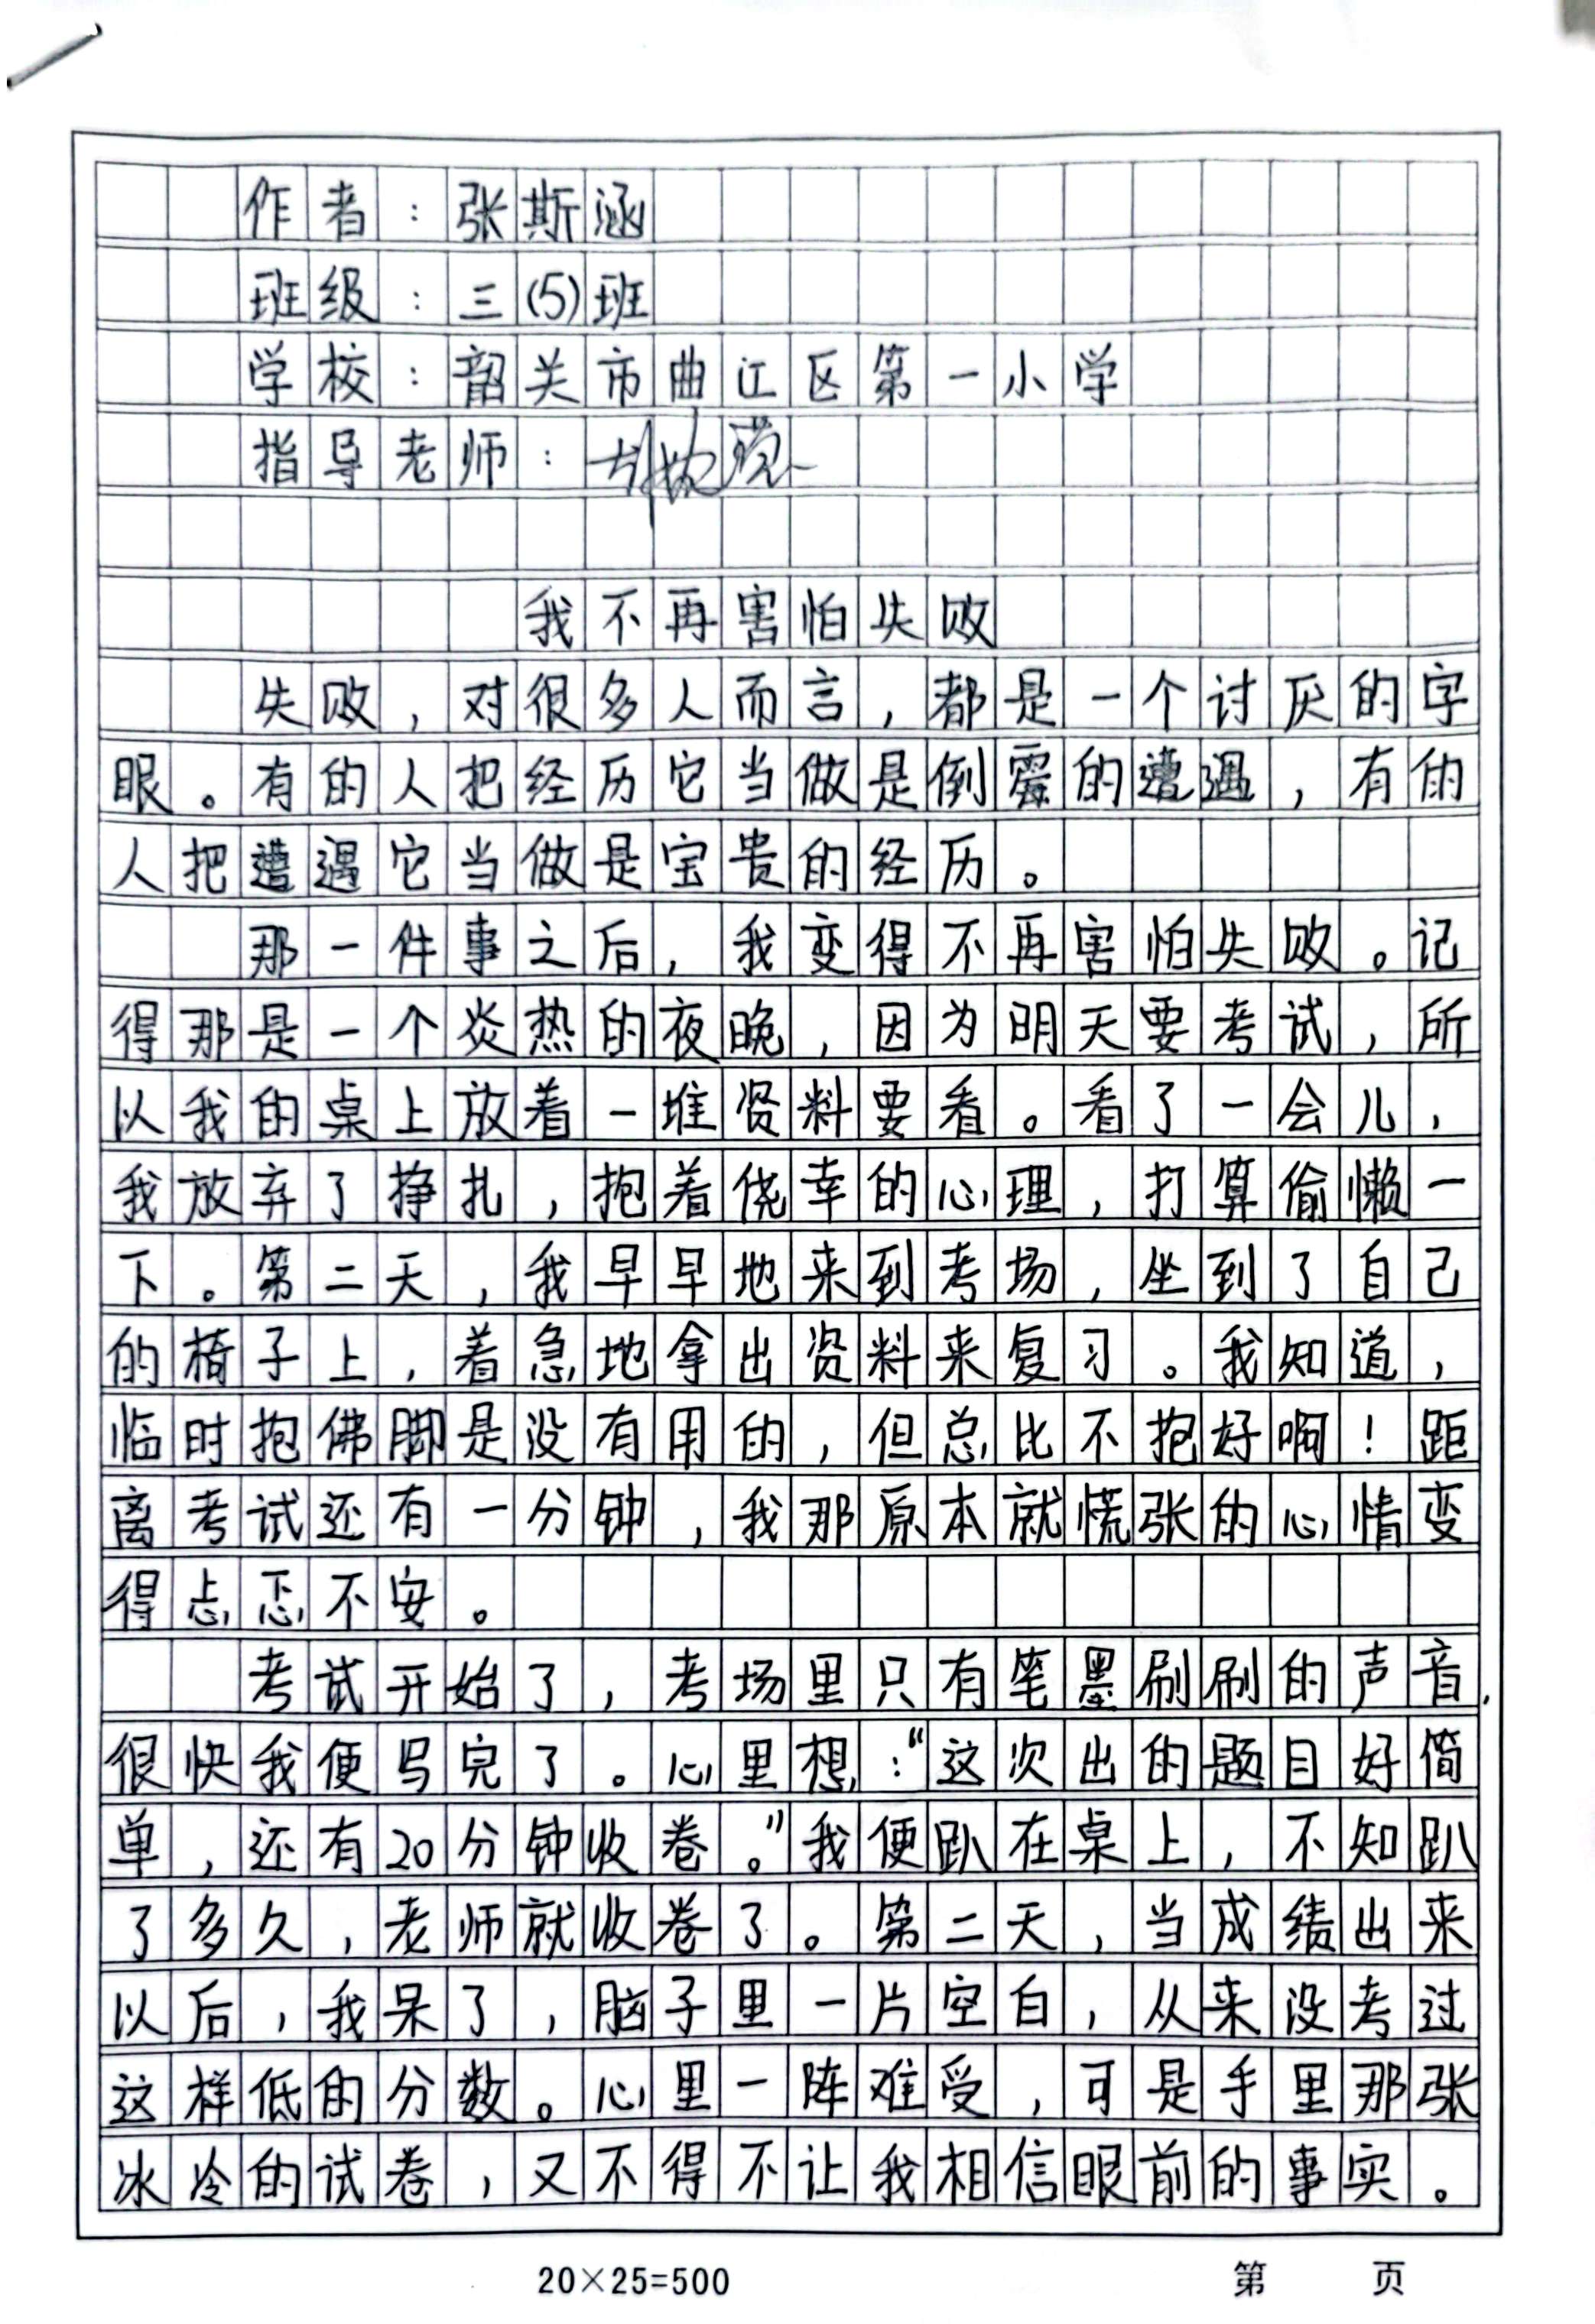 作者：张斯涵
班级：三(5)班
学校：韶关市曲江区第一小学
指导老师：
我不再害怕失败
失败，对很多人而言，都是一个讨厌的字
眼。有的人把经历它当做是倒霉的遭遇，有的
人把遭遇它当做是宝贵的经历。
那一件事之后，我变得不再害怕失败。记
得那是一个炎热的夜晚，因为明天要考试，所
以我的桌上放着一堆资料要看。看了一会儿，
我放弃了挣扎，抱着侥幸的心理，打算偷懒一
下。第二天，我早早地来到考场，坐到了自己
的椅子上，着急地拿出资料来复习。我知道，
临时抱佛脚是没有用的，但总比不抱好啊！距
离考试还有一分钟，我那原本就慌张的心情变
得忐忑不安。
考试开始了，考场里只有笔墨刷刷的声音，
很快我便写完了。心里想：“这次出的题目好简
单，还有20分钟收卷。”我便趴在桌上，不知趴
了多久，老师就收卷了。第二天，当成绩出来
以后，我呆了，脑子里一片空白，从来没考过
这样低的分数。心里一阵难受，可是手里那张
冰冷的试卷，又不得不让我相信眼前的事实。
20×25=500 第 页